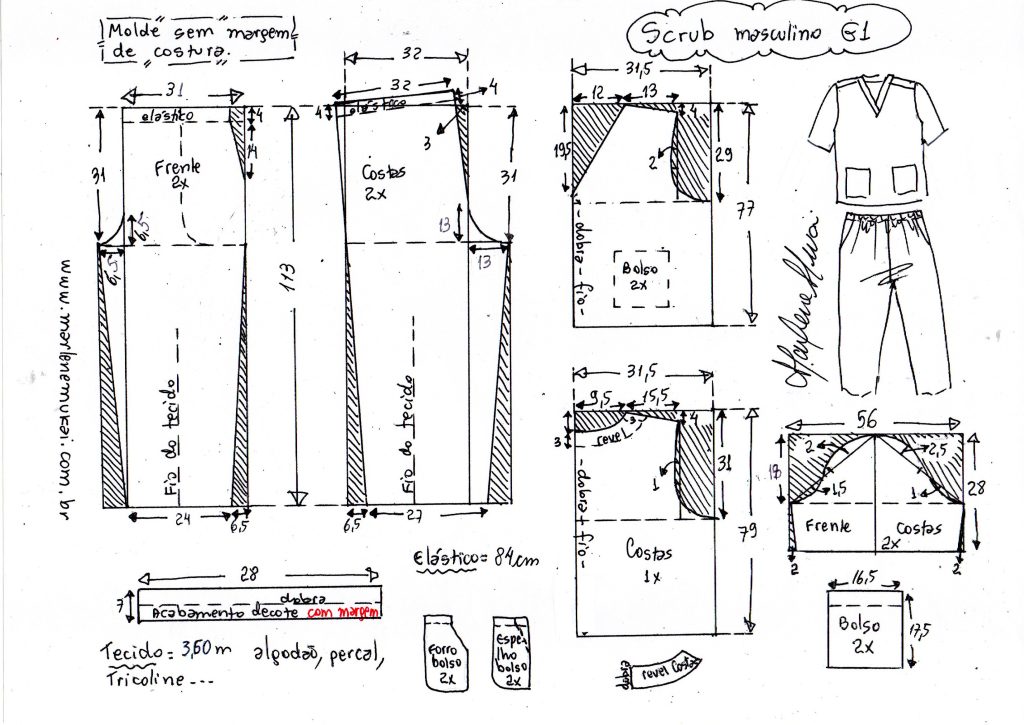 Molde sem margem
de costura.
Scrub masculino G1
31
elástico
4
14
31
Frente
2x
6,5
6,5
113
Fio do tecido
24
6,5
32
32
4
elástico
4
3
Costas
2x
31
13
13
Fio do tecido
6,5
27
31,5
12
13
4
19,5
2
29
77
dobra - fio -
Bolso
2x
31,5
9,5
15,5
4
3
3
revel
31
1
79
dobra + fio -
Costas
1x
56
2
2,5
18
1,5
1
28
Frente
Costas
2x
2
2
16,5
Bolso
2x
17,5
Marlene Mukai
www.marlenemukai.com.br
28
7
dobra
Acabamento decote com margem
Elástico = 84cm
Tecido = 3,60m algodão, percal,
Tricoline ---
Forro
bolso
2x
Espe-
lho
bolso
2x
dobra
revel Costas